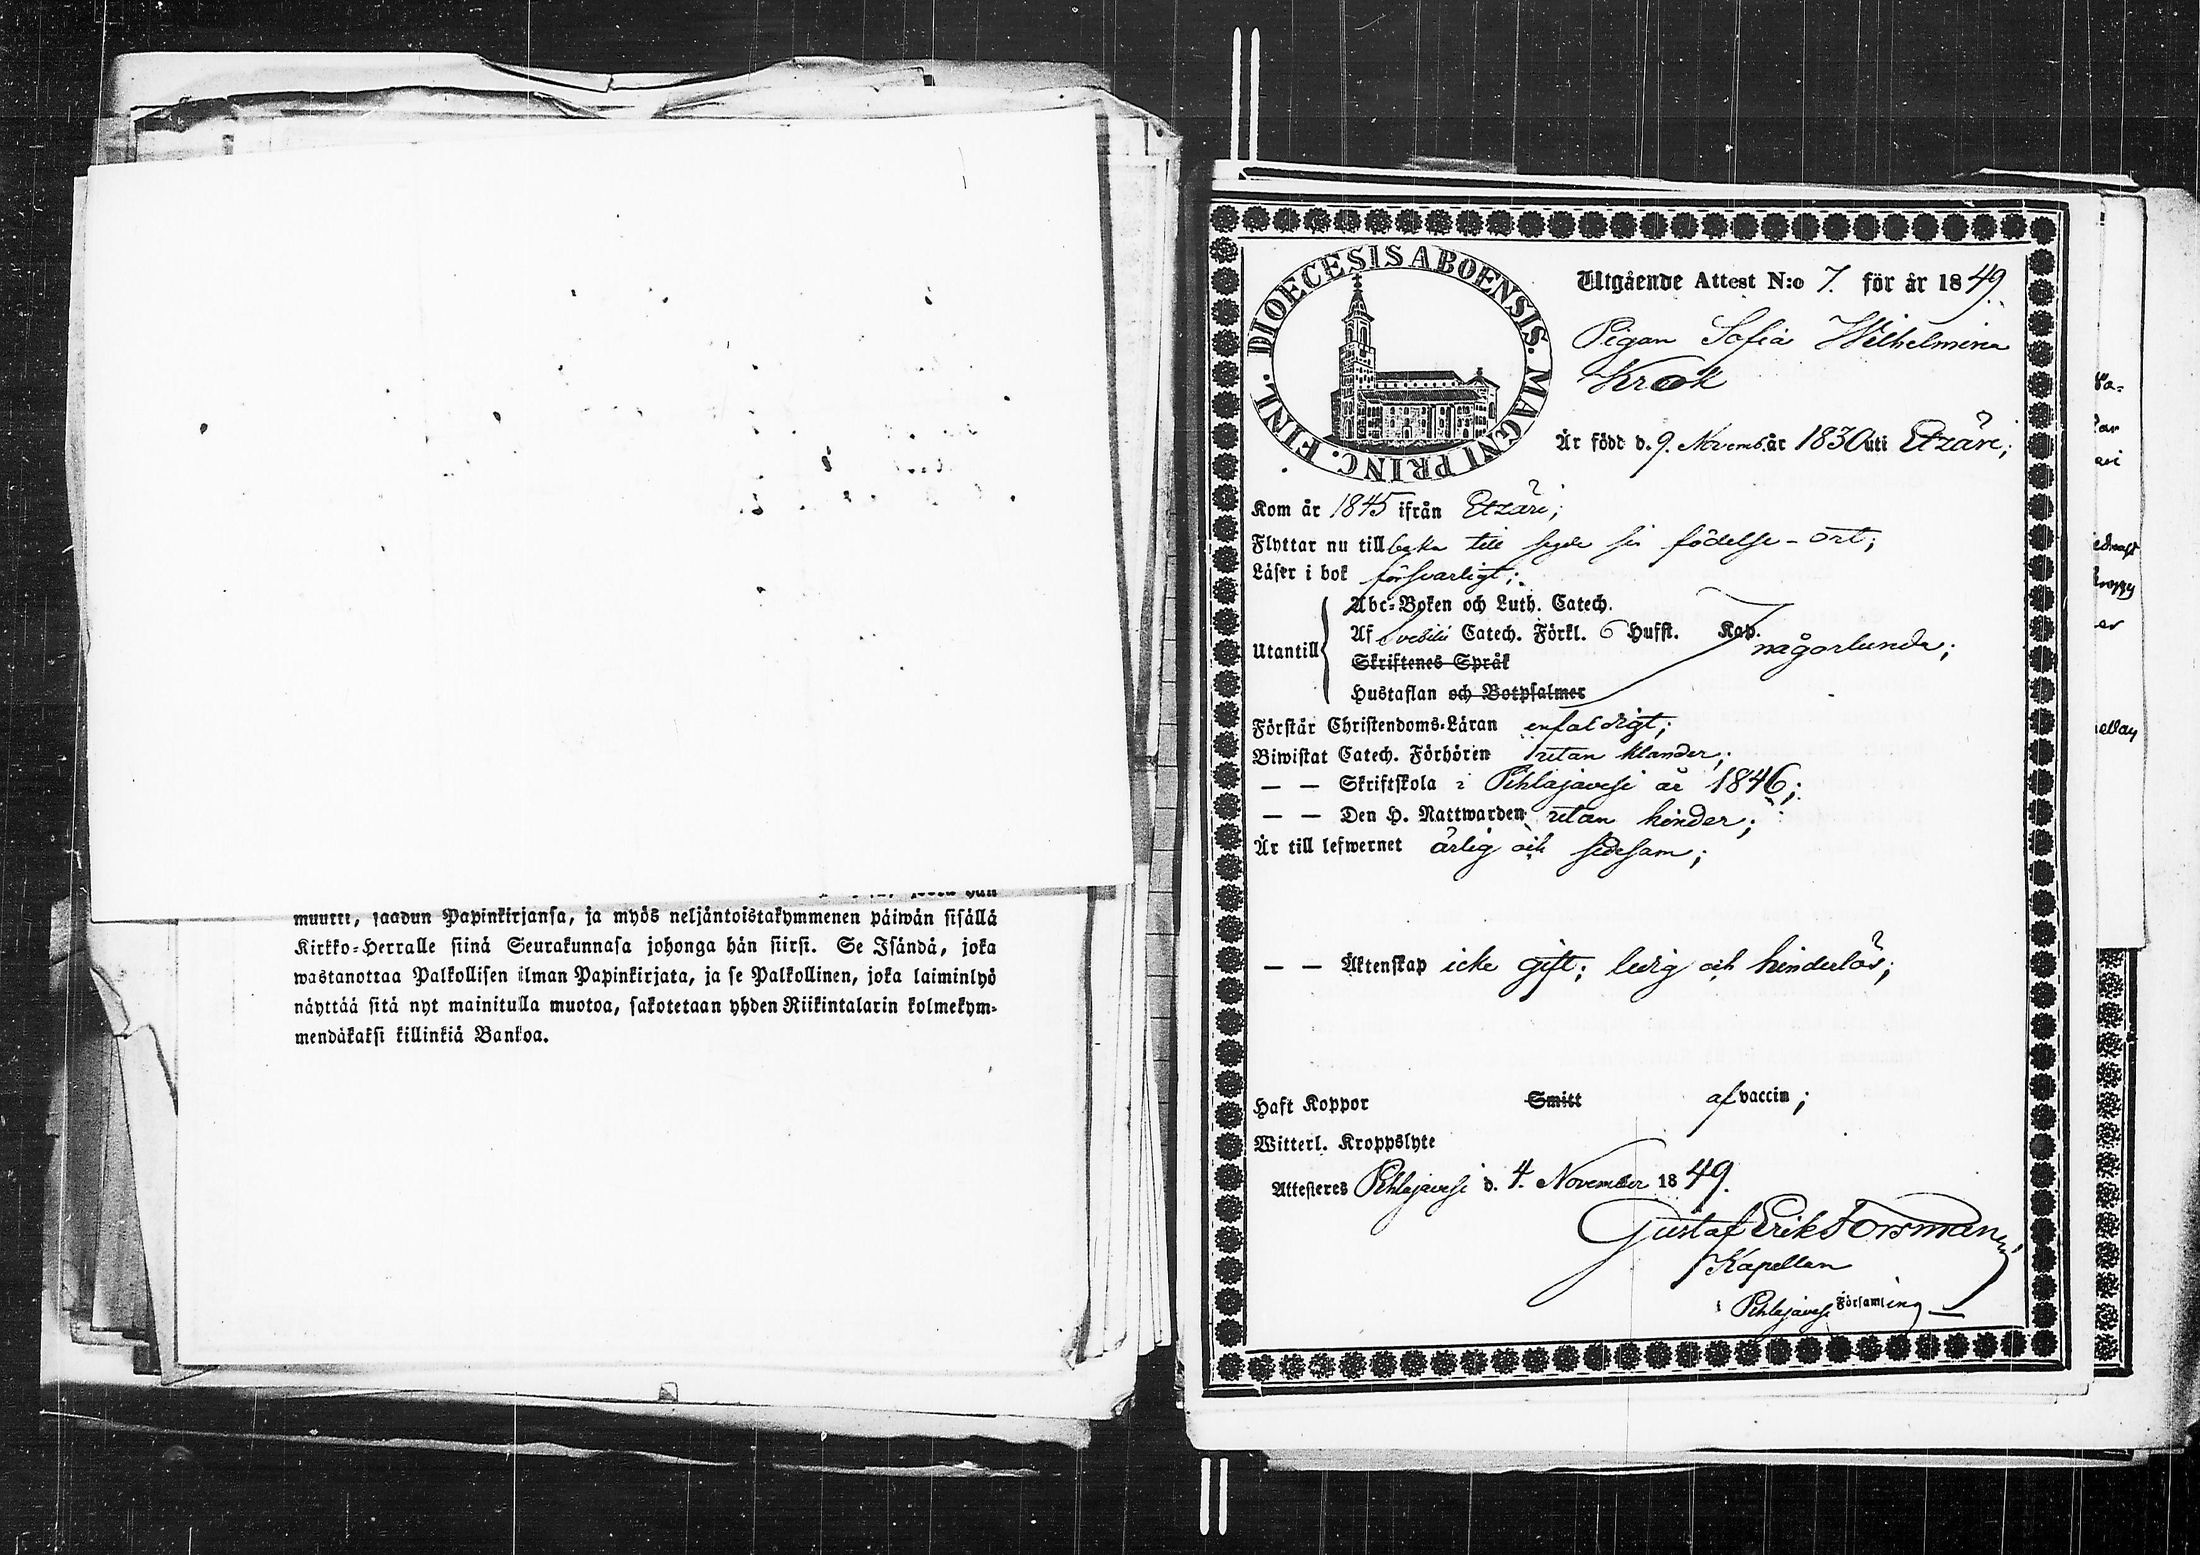 muutti, saadun Papinkirjansa, ja myös neljäntoistakymmenen päiwän sisällä
Kirkko-Herralle siinä Seurakunnasa johonga hän siirsi. Se Isändä, joka
wastanottaa Palkollisen ilman Papinkirjata, ja se Palkollinen, joka laiminlyö
näyttää sitä nyt mainitulla muotoa, sakotetaan yhden Riikintalarin kolmekym-
mendäkaksi killinkiä Bankoa.
DIOECESIS ABOENSIS. MAGNI PRINC. FINL.
Utgående Attest N:o 7. för år 1849.
Pigan Sofia Wilhelmina
Krook
Är född d. 9. Novemb. år 1830 uti Etzäri;
Kom år 1845 ifrån Etzäri;
Flyttar nu till baka till födelse-ort;
Läser i bok försvarligt;
Utantill
Abc-Boken och Luth. Catech.
Af Svebilii Catech. Förkl. 6 Hufst. Kap.
någorlunda;
Skriftenes Språk
Hustaflan och Botpsalmer
Förstår Christendoms-Läran enfaldigt;
Biwistat Catech. Förhören utan klander;
— — Skriftskola i Pihlajavesi år 1846;
— — Den H. Nattwarden utan hinder;
Är till lefwernet ärlig och sedesam;
— — Äktenskap icke gift; ledig och hinderlös;
Haft Koppor Smitt af vaccin;
Witterl. Kroppslyte
Attesteres Pihlajavesi d. 4. November 1849.
Gustaf Erik Forsman
Kapellan
i Pihlajavesi Församling